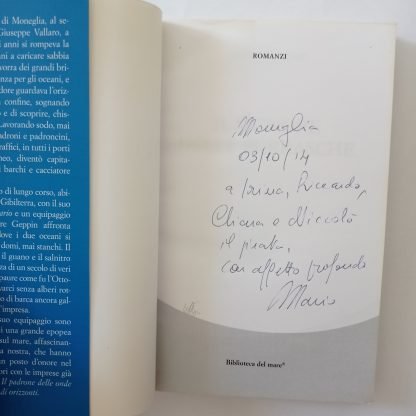 di Moneglia, al se-
Giuseppe Vallaro, a
i anni si rompeva la
ani a caricare sabbia
avorra dei grandi bri-
enza per gli oceani, e
dore guardava l'oriz-
confine, sognando
e di scoprire, chis-
Lavorando sodo, mai
adroni e padroncini,
raffici, in tutti i porti
neo, diventò capita-
i barchi e cacciatore
o di lungo corso, abi-
Gibilterra, con il suo
ario e un equipaggio
re Geppin affronta
dove i due oceani si
domi, mai stanchi. Il
il guano e il salnitro
za di un secolo di veri
paure come fu l'Otto-
varci senza alberi rot-
di barca ancora gal-
l'impresa.
suo equipaggio sono
di una grande epopea
sul mare, affascinan-
a nostra, che hanno
un posto d'onore nel
ori con le imprese già
Il padrone delle onde
di orizzonti.
ROMANZI
Moneglia
03/10/14
a Riccardo,
Chiara e Niccolò
il pirata,
con affetto profondo
Mario
Biblioteca del mare®